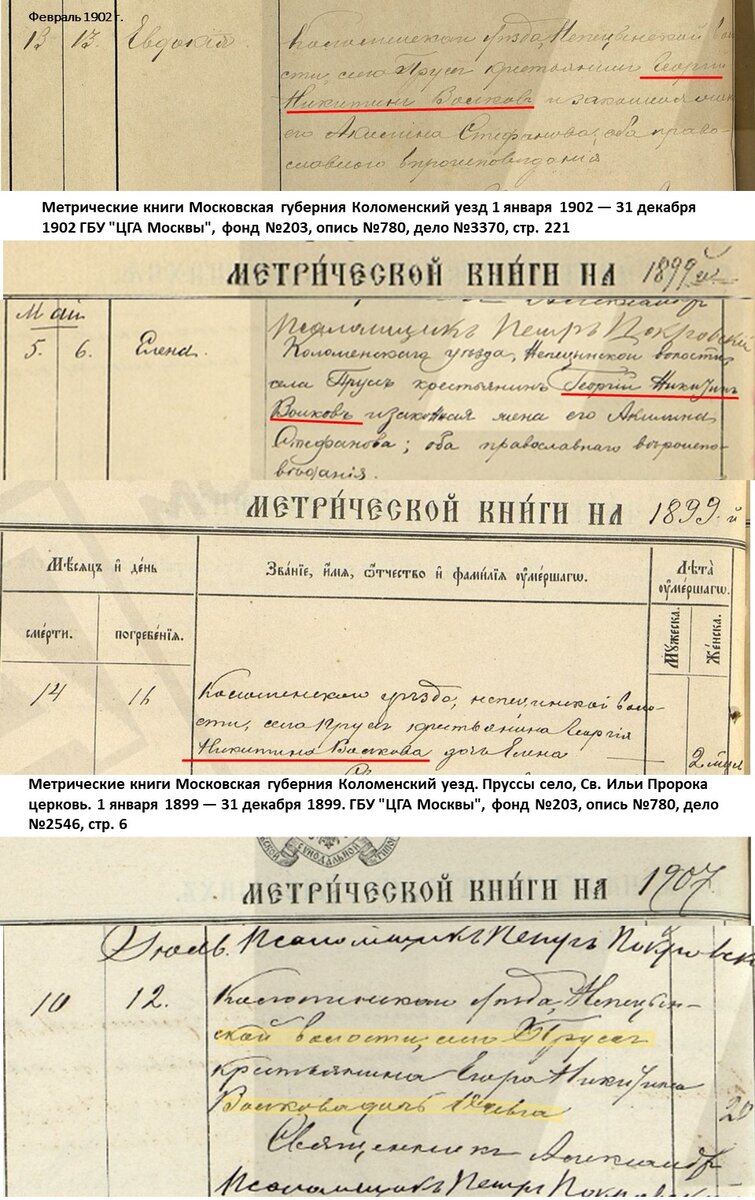 Февраль 1902 г.
13 13. Евдокія. Коломенскаго уѣзда, Непецынской воло
сти, села Прусъ крестьянинъ Георгій
Никитинъ Волковъ и законная жена
его Акилина Стефанова, оба право-
славнаго вѣроисповѣданія
Метрические книги Московская губерния Коломенский уезд 1 января 1902 — 31 декабря
1902 ГБУ "ЦГА Москвы", фонд №203, опись №780, дело №3370, стр. 221
МЕТРИ́ЧЕСКОЙ КНИ́ГИ НА 1899 й
Май
Псаломщикъ Петръ Покровскій
5. 6. Елена. Коломенскаго уѣзда, Непецинской волости,
села Прусъ крестьянинъ Георгій Никитинъ
Волковъ и законная жена его Акилина
Стефанова; оба православнаго вѣроиспо-
вѣданія.
МЕТРИ́ЧЕСКОЙ КНИ́ГИ НА 1899. й
Мѣсяцъ и день
Зва́ніе, и́мя, ѻ҆́тчество и фами́лія ᲂу҆ме́ршагѡ.
Лѣта̀ ᲂу҆ме́ршагѡ.
сме́рти.
погребе́нія.
Му́жеска.
Же́нска.
14 16 Коломенскаго уѣзда, Непецинской воло-
сти, села Прусъ крестьянина Георгія
Никитина Волкова дочь Елена
Метрические книги Московская губерния Коломенский уезд. Пруссы село, Св. Ильи Пророка
церковь. 1 января 1899 — 31 декабря 1899. ГБУ "ЦГА Москвы", фонд №203, опись №780, дело
№2546, стр. 6
МЕТРИ́ЧЕСКОЙ КНИ́ГИ НА 1907
Псаломщикъ Петръ Покровскій
10 12. Коломенскаго уѣзда, Непецын-
ской волости, села Прусъ
крестьянина Егора Никитина
Волкова дочь
Священникъ Александр
Псаломщикъ Петръ Покровскій